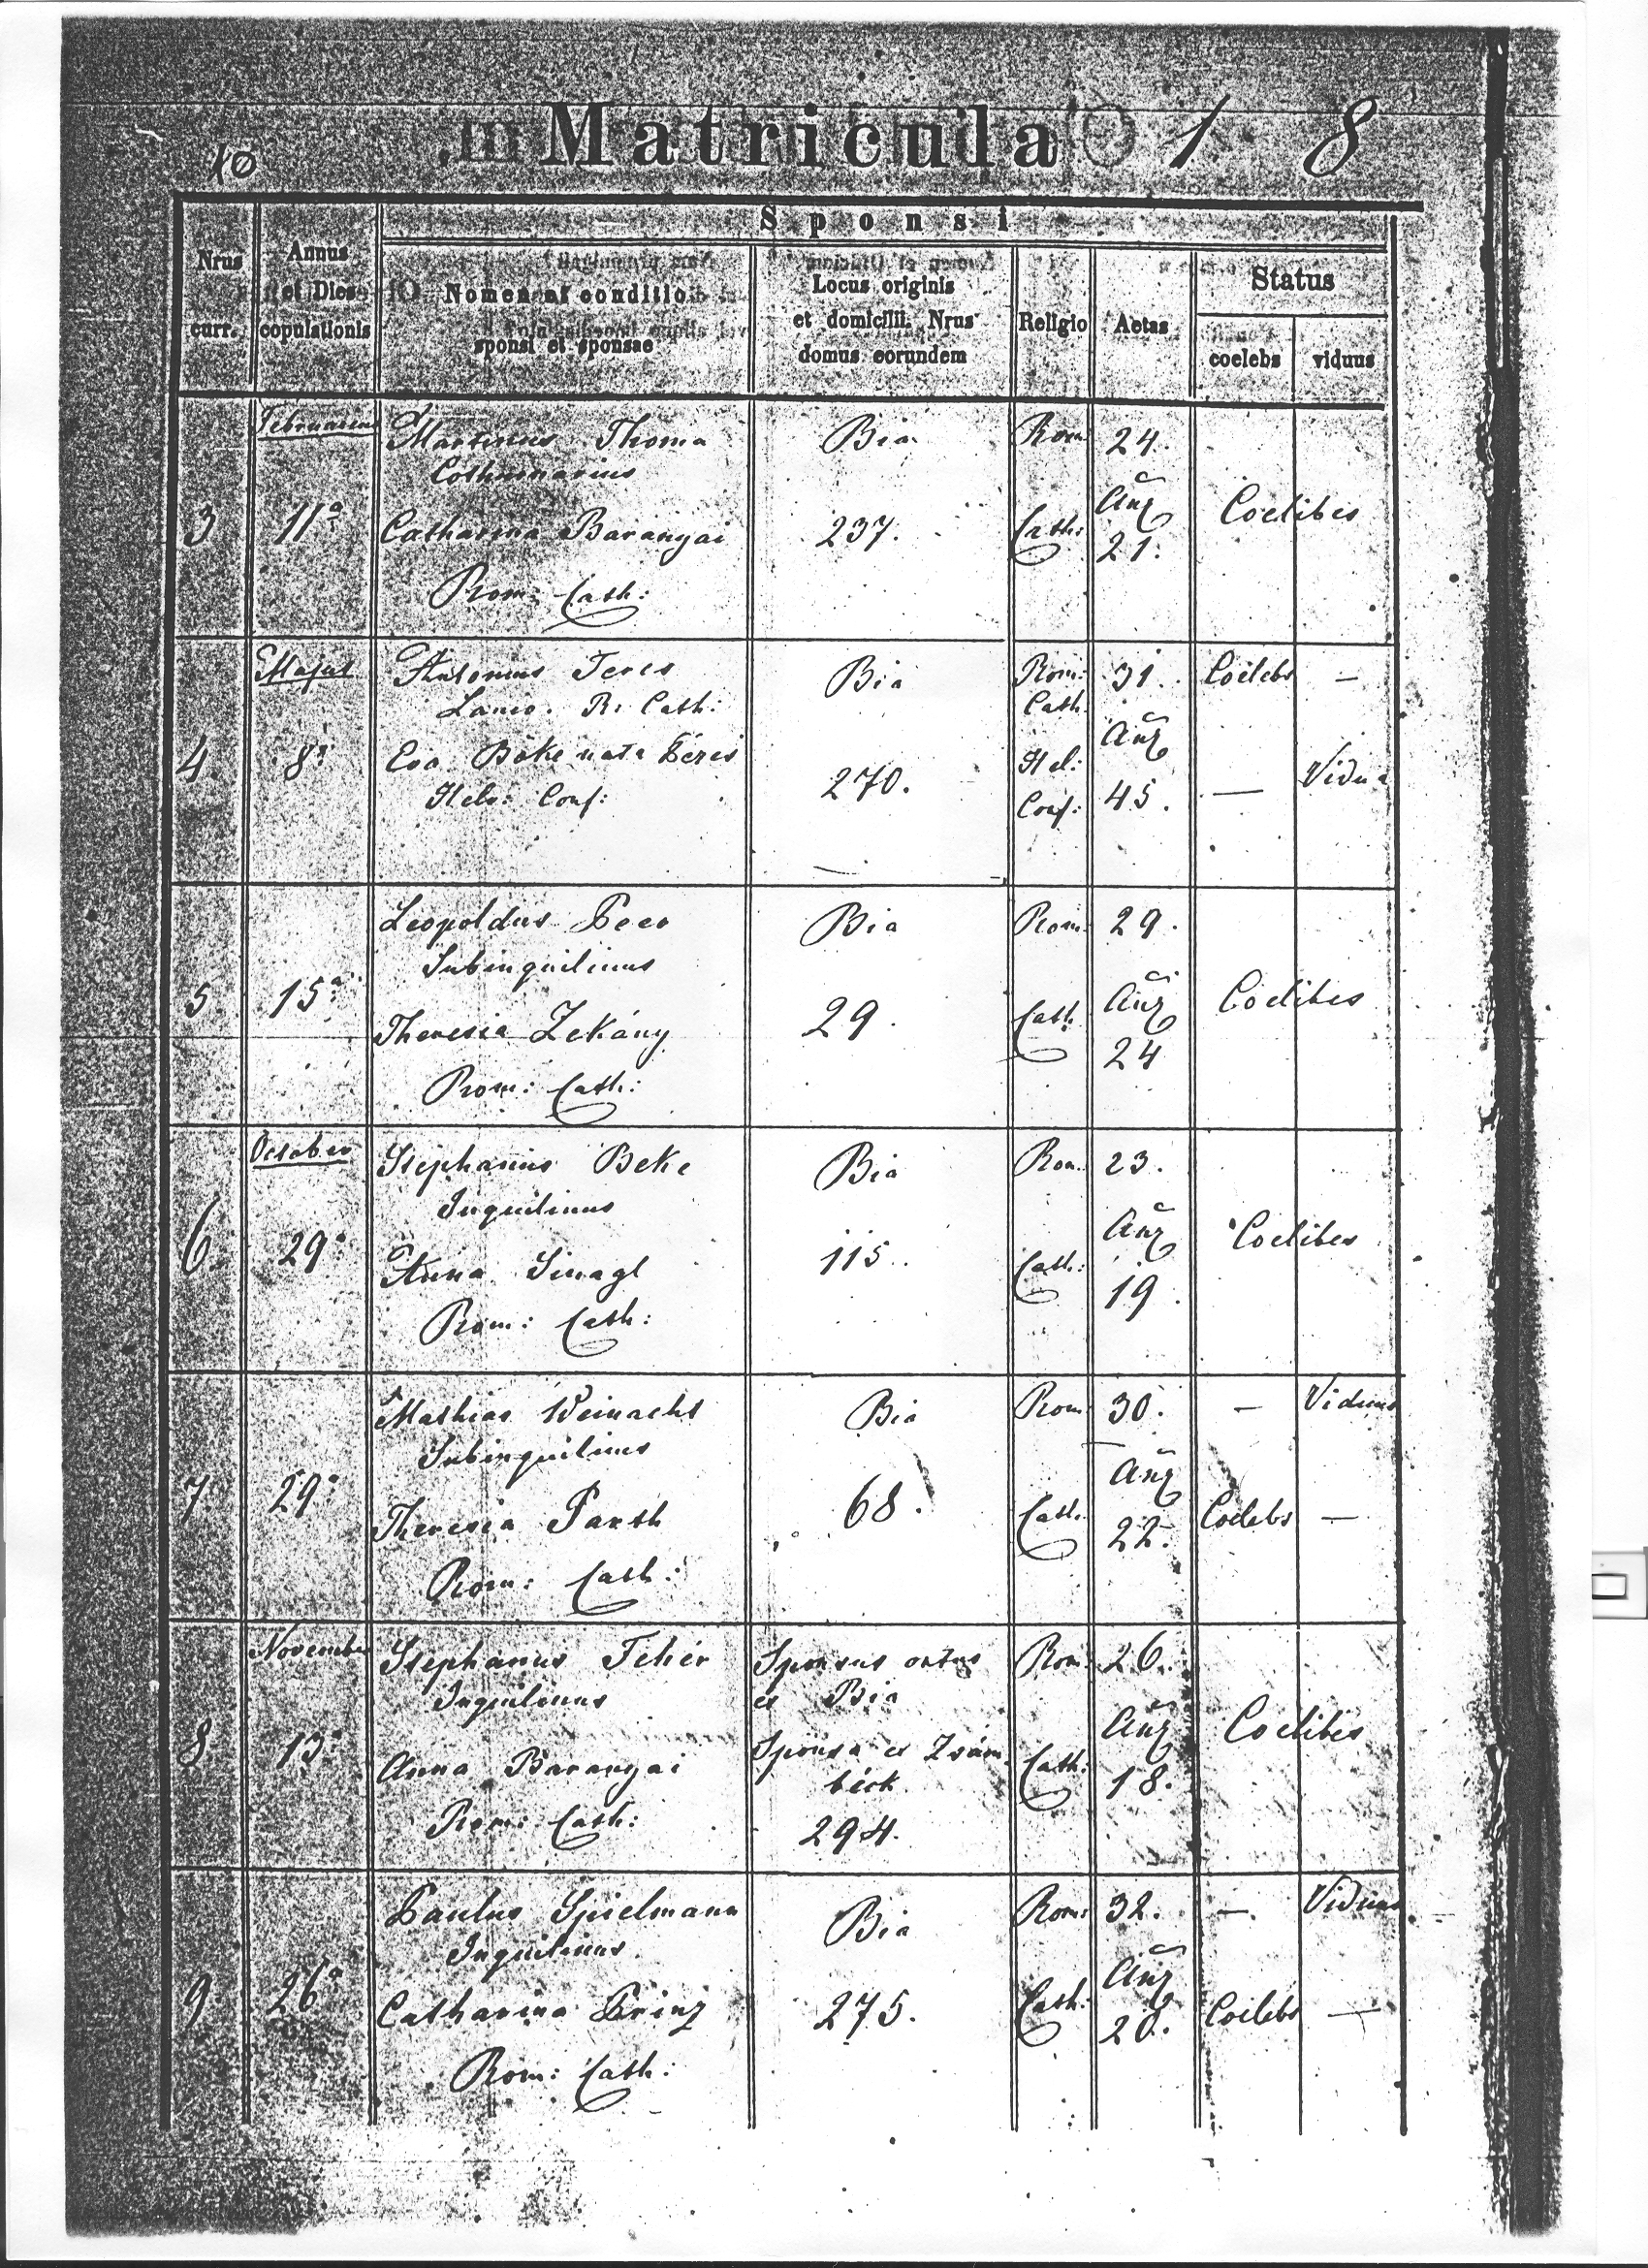 10
Matricula 1 8
Sponsi
Nrus
curr.
Annus
et Dies
copulationis
Nomen et conditio
sponsi et sponsae
Locus originis
et domicilii. Nrus
domus eorundem
Religio
Aetas
Status
coelebs
viduus
3
Februarius
11a
Martinus Thoma
Cothurnarius
Catharina Barangai
Rom: Cath:
Bia
237.
Rom:
Cath:
24.
21.
Coelibes
4.
Majus
8a
Antonius
Lanio. R. Cath:
Eva Böke nata
Helv: Conf:
Bia
270.
Rom:
Cath.
Hel:
Conf:
31.
45.
Coelebs —
— Vidua
5
15a
Leopoldus
Subinquilinus
Theresia Zekány
Rom: Cath:
Bia
29.
Rom:
Cath.
29.
24
Coelibes
6.
October
29a
Stephanus Beke
Inquilinus
Anna
Rom: Cath:
Bia
115.
Rom.
Cath.:
23.
19.
Coelibes
7
29a
Mathias Weinacht
Subinquilinus
Theresia
Rom: Cath:
Bia
68.
Rom:
Cath.
30.
22.
— Viduus
Coelebs —
8
November
13a
Stephanus Fehér
Inquilinus
Anna Barangai
Rom: Cath:
Sponsus ortus
ex Bia
Sponsa ex Zsám-
béck
294.
Rom:
Cath:
26.
18.
Coelibes
9
26a
Paulus Spielmann
Inquilinus
Catharina Prinz
Rom: Cath:
Bia
275.
Rom:
Cath:
32.
— Viduus
Coelebs —